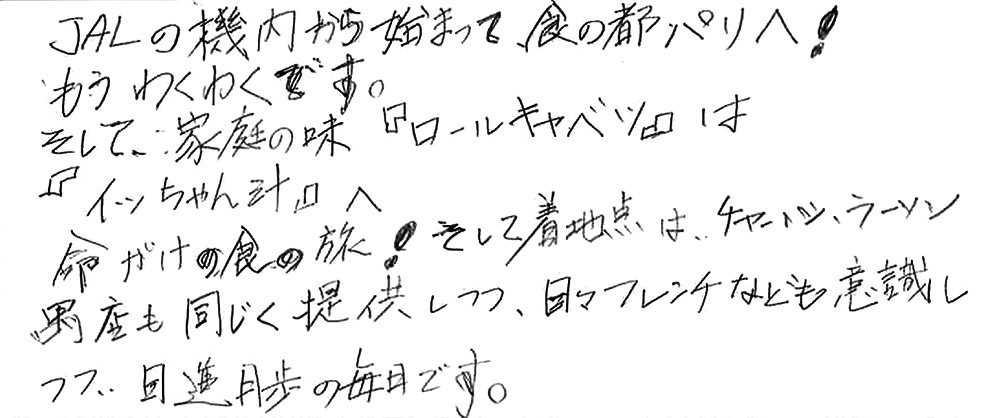 JALの機内から始まって、食の都パリへ!
もうわくわくです。
そして、家庭の味『ロールキャベツ』は
『イッちゃん汁』へ
命がけの食の旅!そして着地点は、チャーハン、ラーメン
も同じく提供しつつ、日々フレンチなども意識し
つつ、日進月歩の毎日です。